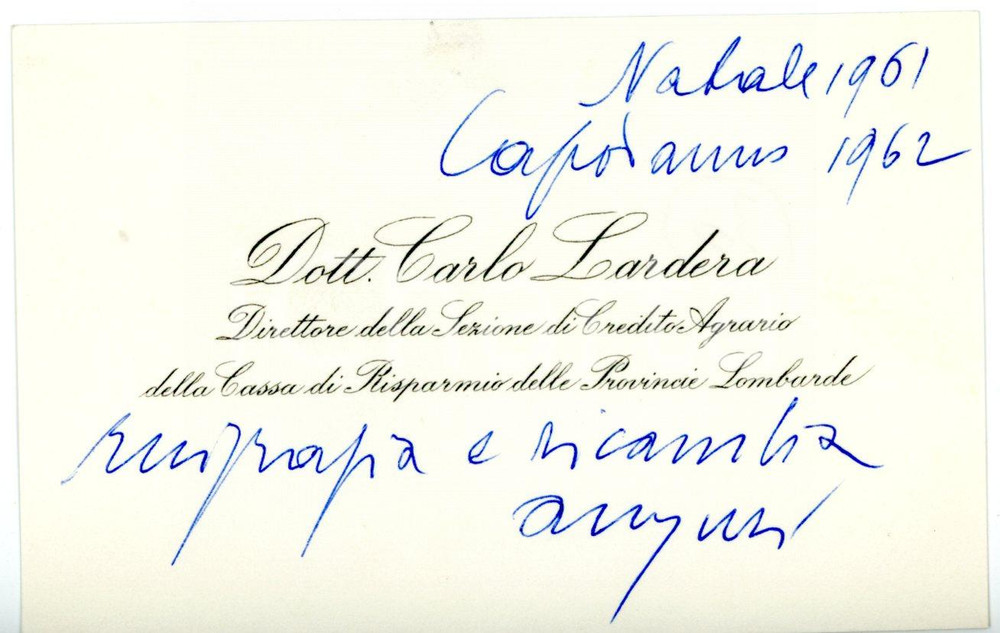 Natale 1961
Capodanno 1962
Dott. Carlo Lardera
Direttore della Sezione di Credito Agrario
della Cassa di Risparmio delle Provincie Lombarde
ringrazia e ricambia
auguri